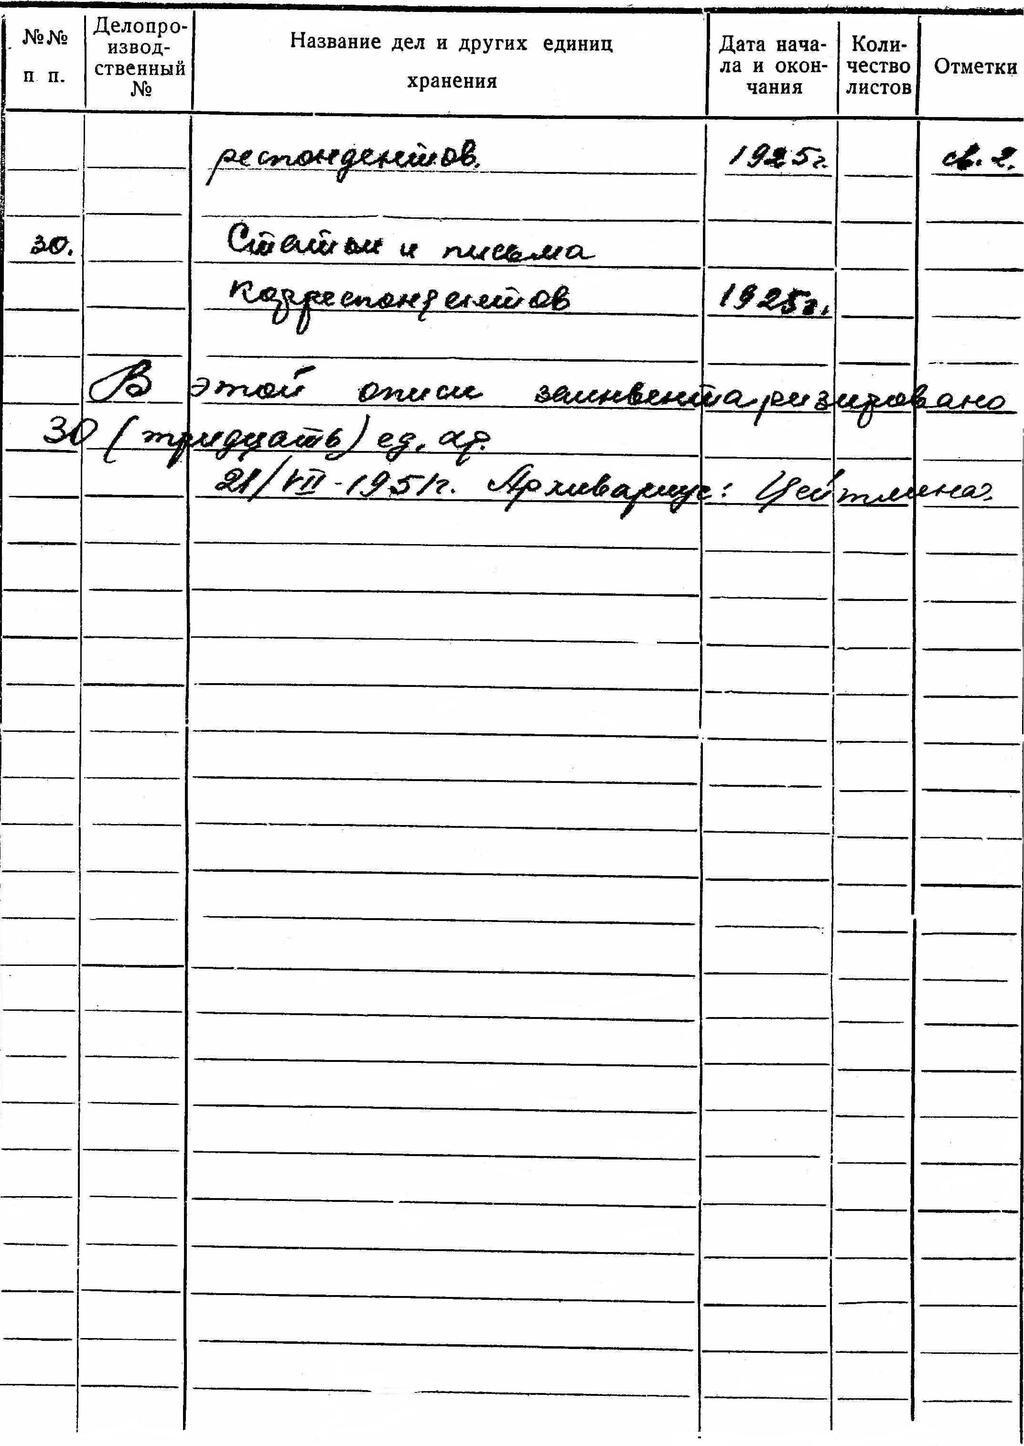 №№ п п.
Делопроизвод-
ственный
№
Название дел и других единиц
хранения
Дата нача-
ла и окон-
чания
Коли-
чество
листов
Отметки
респондентов. 1925г. св. 2.
30. Статьи и письма
корреспондентов 1925г.
В этой описи заинвентаризировано
30 (тридцать) ед. хр.
21/VII-1951г. Архивариус: Цейтлина.